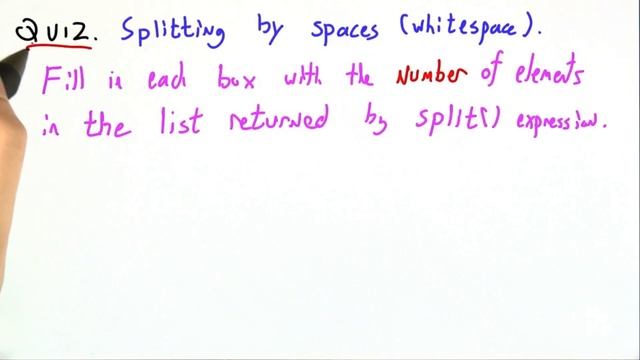 QUIZ. Splitting by spaces (whitespace).
Fill in each box with the Number of elements
in the list returned by split() expression.